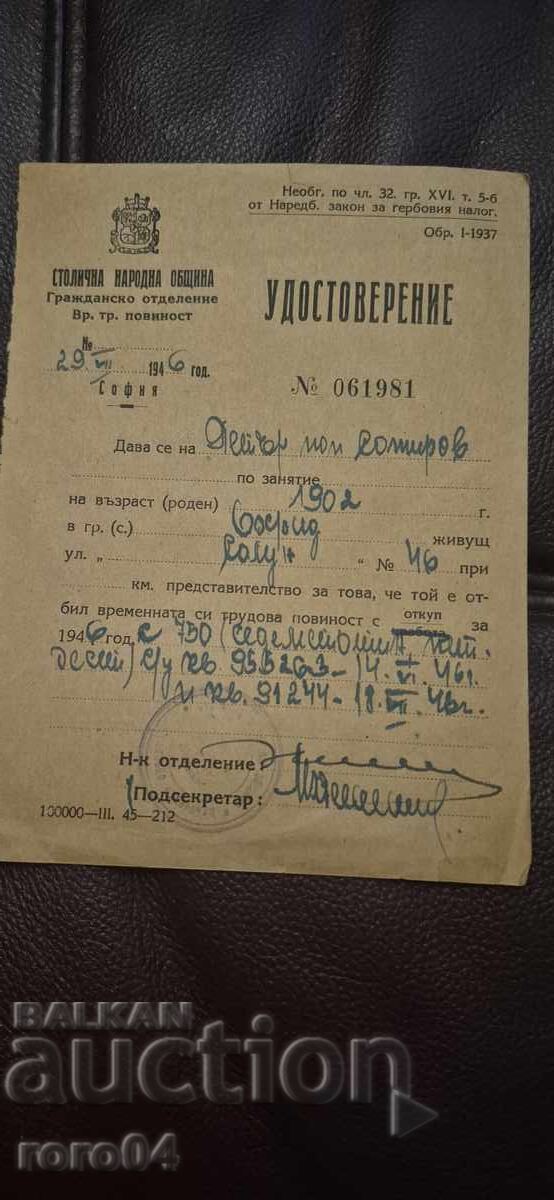 Необг. по чл. 32. гр. XVI. т. 5-б
от Наредб. закон за гербовия налог.
Обр. I-1937
СТОЛИЧНА НАРОДНА ОБЩИНА
Гражданско отделение
Вр. тр. повиност
УДОСТОВЕРЕНИЕ
№
29 VII 1946 год.
София
№ 061981
Дава се на Петър поп
по занятие
на възраст (роден) 1902 г.
в гр. (с.) Охрид живущ
ул. „ Солун “ № 46 при
км. представителство за това, че той е от-
бил временната си трудова повиност с откуп
работа за
1946 год. с 750 (седемстотин и пет-
десет) с/у кв. 955263 - 14. VI. 46 г.
и кв. 91244 - 18. VII. 46 г.
Н-к отделение:
Подсекретар:
100000—III. 45—212
BALKAN
auction
roro04